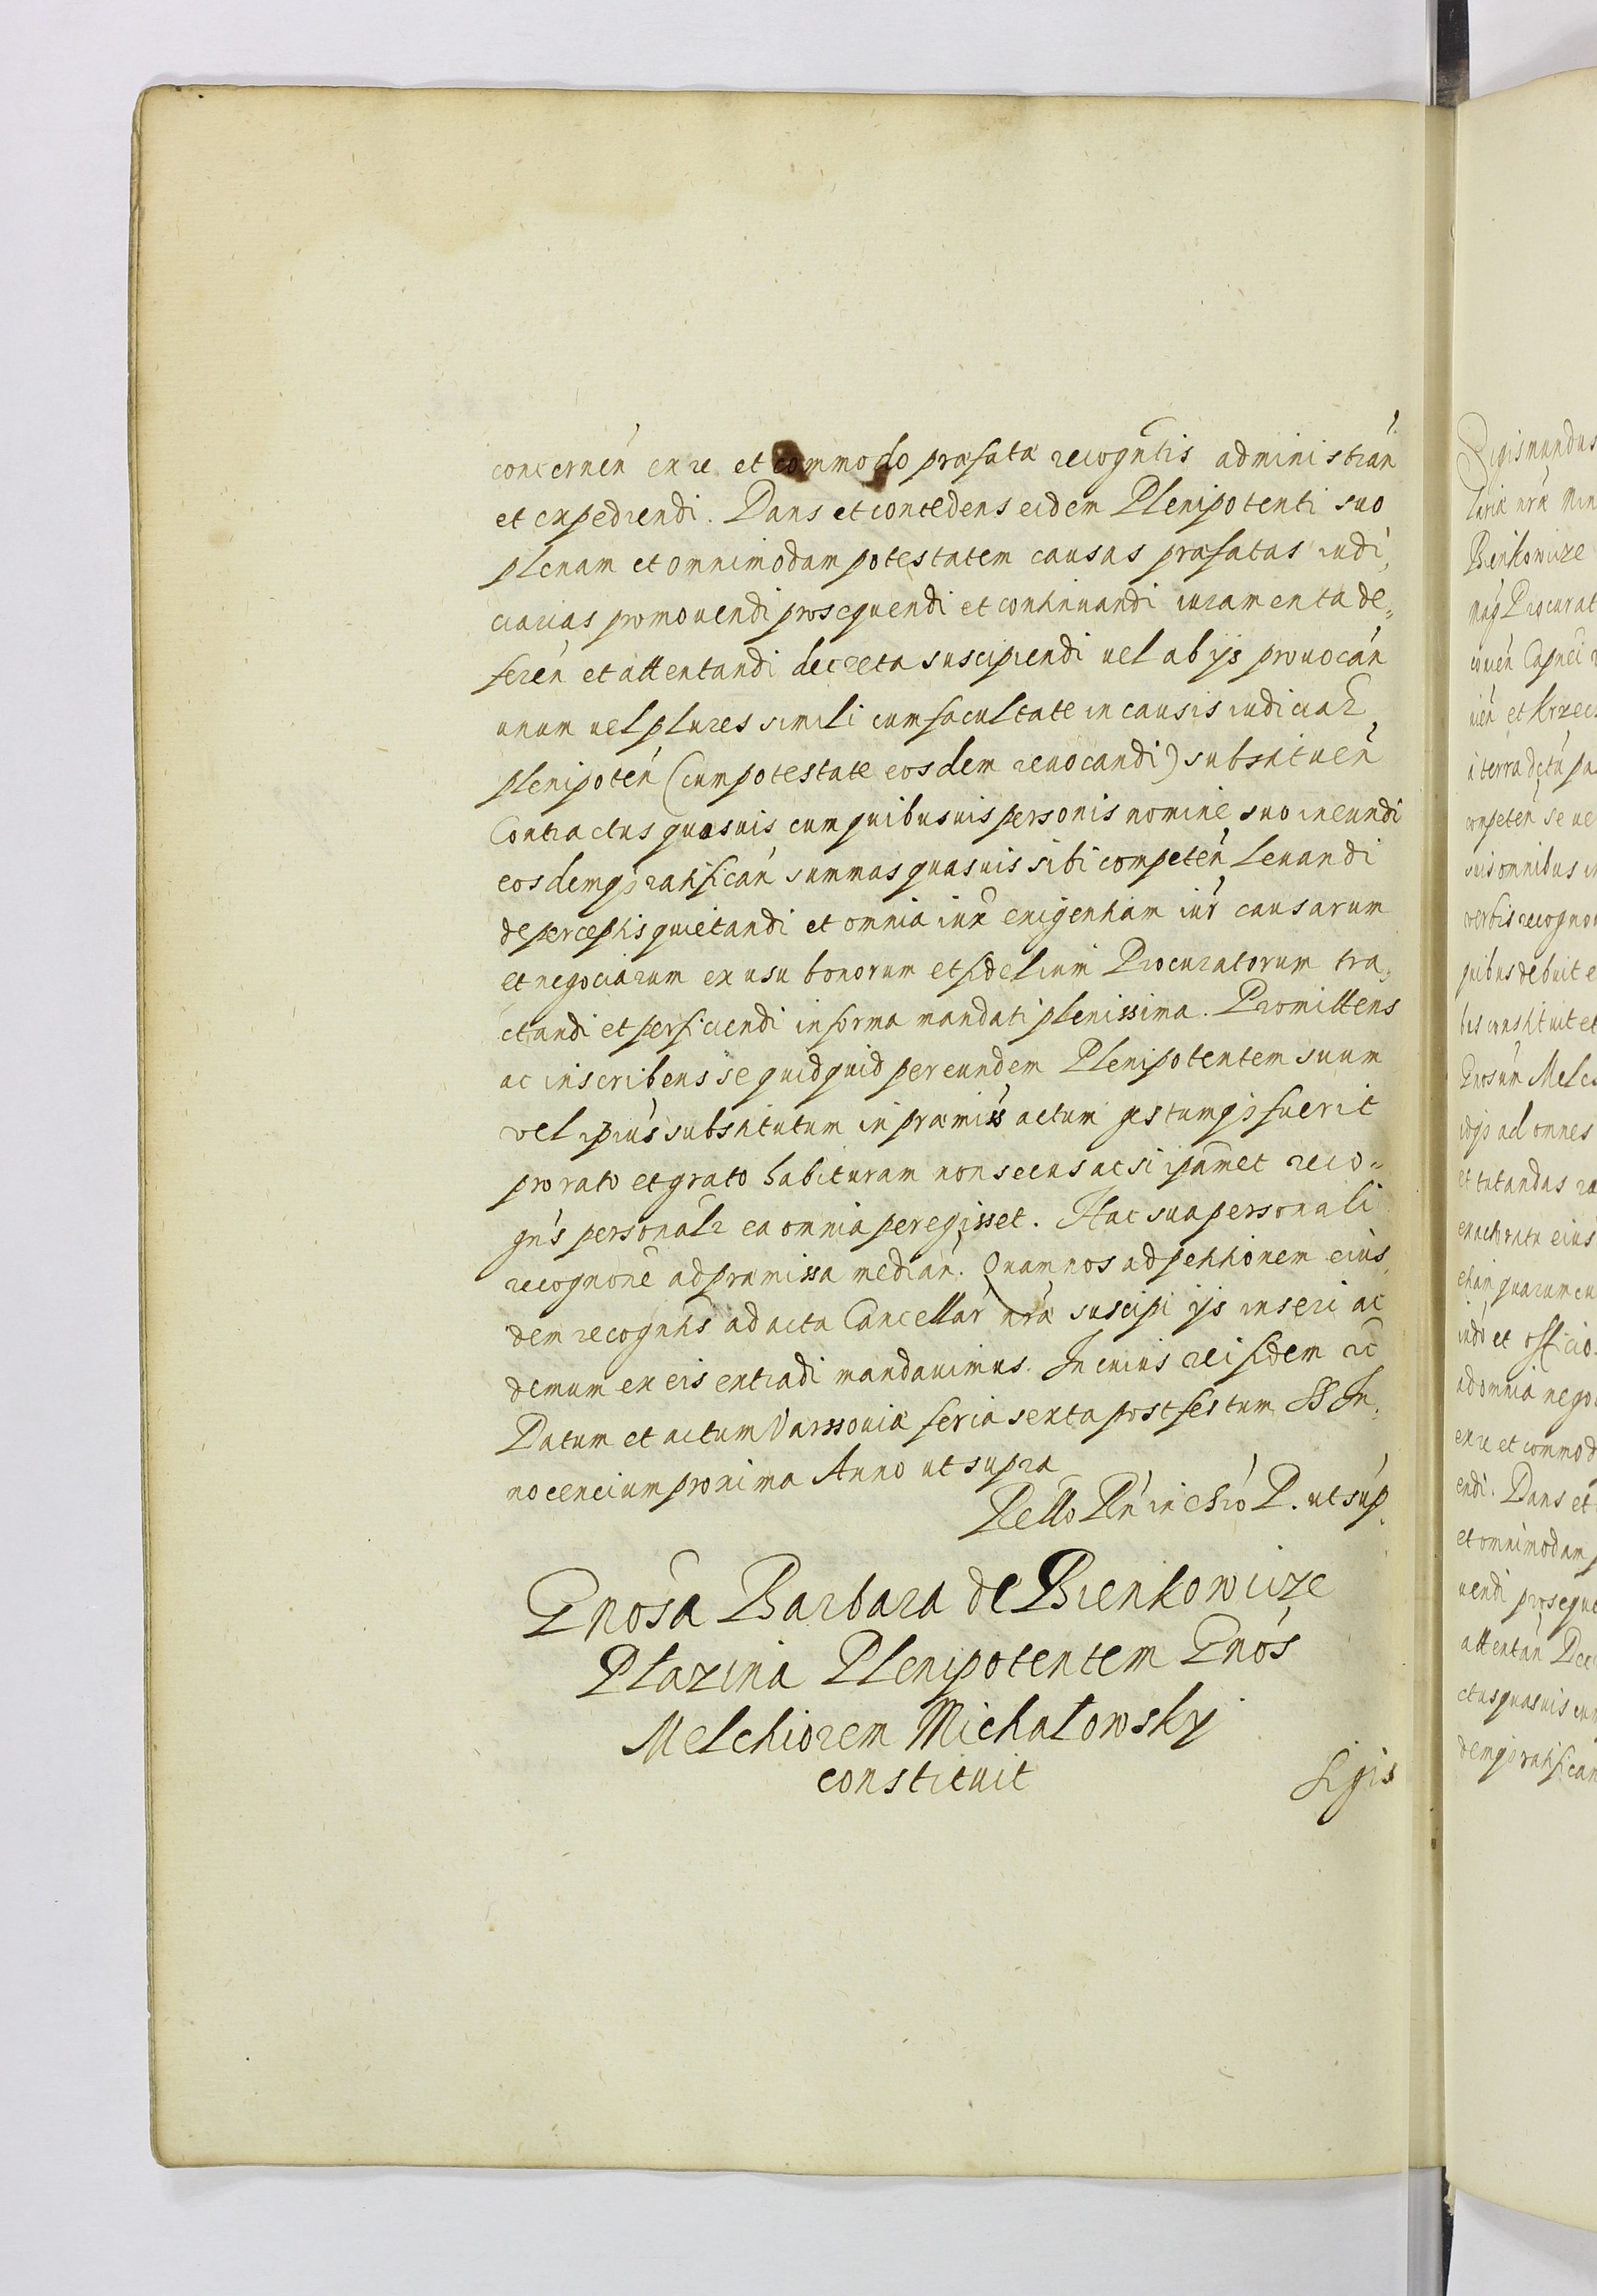 concernen ex re et commodo præfatæ recogntis administran
et expediendi. Dans et concedens eidem Plenipotenti suo
plenam et omnimodam potestatem causas præfatas iudi,
ciarias promouendi prosequendi et continuandi iuramenta de,,
feren et attentandi decreta suscipiendi uel ab ijs prouocan
unum uel plures simili cum facultate in causis iudicial
plenipoten (cum potestate eosdem reuocandi) substituen
Contractus quosuis cum quibusuis personis nomine suo ineundi
eosdemq3 ratifican summas quasuis sibi competen leuandi
de perceptis quietandi et omnia iux exigentiam iur causarum
et negociarum ex usu bonorum et fidelium Procuratorum tra,
ctandi et perficiendi in forma mandati plenissima. Promittens
ac inscribens se quidquid per eundem Plenipotentem suum
vel ipius substitutum in præmiss actum gestumq3 fuerit
pro rato et grato habituram non secus ac si ipamet reco-
gns personalr ea omnia peregisset. Hac sua personali
recognone ad præmissa median. Quam nos ad petitionem eius,
dem recogntis ad acta Cancellar nræ suscipi ijs inseri ac
demum ex eis extradi mandauimus. In cuius rei fidem rc
Datum et actum Varssouiæ feria sexta post festum SS In,
nocencium proxima Anno ut supra
Rello Rn in chio P. ut sup.
Gnosa Barbara de Bienkowicze
Plazina Plenipotentem Gnos
Melchiorem Michalowsky
constituit
Sigis
Zigismundus
lariæ nræ
Bienkowicze
Procurat
Capnei
uien et Krzec
a terra
competen se ue
suis omnibus
verbis recogno
quibus debuit e
constituit et
Gnosum Melc
idq3 ad omnes
et tutandas ra
eius
etiam quarumcu
et officio
ad omnia nego
ex re et commod
endi. Dans et
et omnimodam p
uendi proseque
attentan Dec
ctus quosuis cum
demq3 ratifican